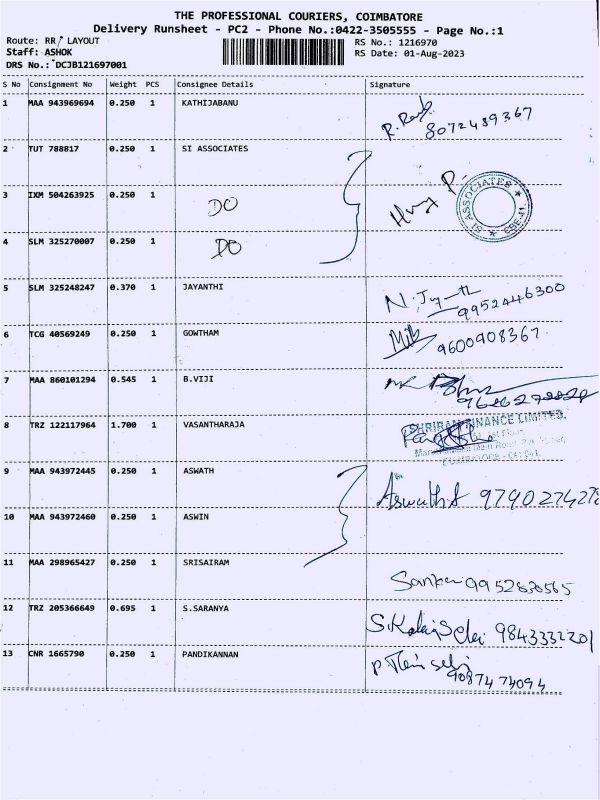 THE PROFESSIONAL COURIERS, COIMBATORE
Delivery Runsheet - PC2 - Phone No.:0422-3505555 - Page No.:1
Route: RR LAYOUT RS No.: 1216970
Staff: ASHOK RS Date: 01-Aug-2023
DRS No.: DCJB121697001
S No Consignment No Weight PCS Consignee Details Signature
1 MAA 943969694 0.250 1 KATHIJABANU
8072489367
2 TUT 788817 0.250 1 SI ASSOCIATES
3 IXM 504263925 0.250 1 DO
SI ASSOCIATES ★ CBE-41. ★
4 SLM 325270007 0.250 1 DO
5 SLM 325248247 0.370 1 JAYANTHI
9952446300
6 TCG 40569249 0.250 1 GOWTHAM
9600908367
7 MAA 860101294 0.545 1 B.VIJI
8 TRZ 122117964 1.700 1 VASANTHARAJA
SHRIRAM FINANCE LIMITED.
9 MAA 943972445 0.250 1 ASWATH
Aswath A
10 MAA 943972460 0.250 1 ASWIN
11 MAA 298965427 0.250 1 SRISAIRAM
12 TRZ 205366649 0.695 1 S.SARANYA
9843332201
13 CNR 1665790 0.250 1 PANDIKANNAN
9087474094